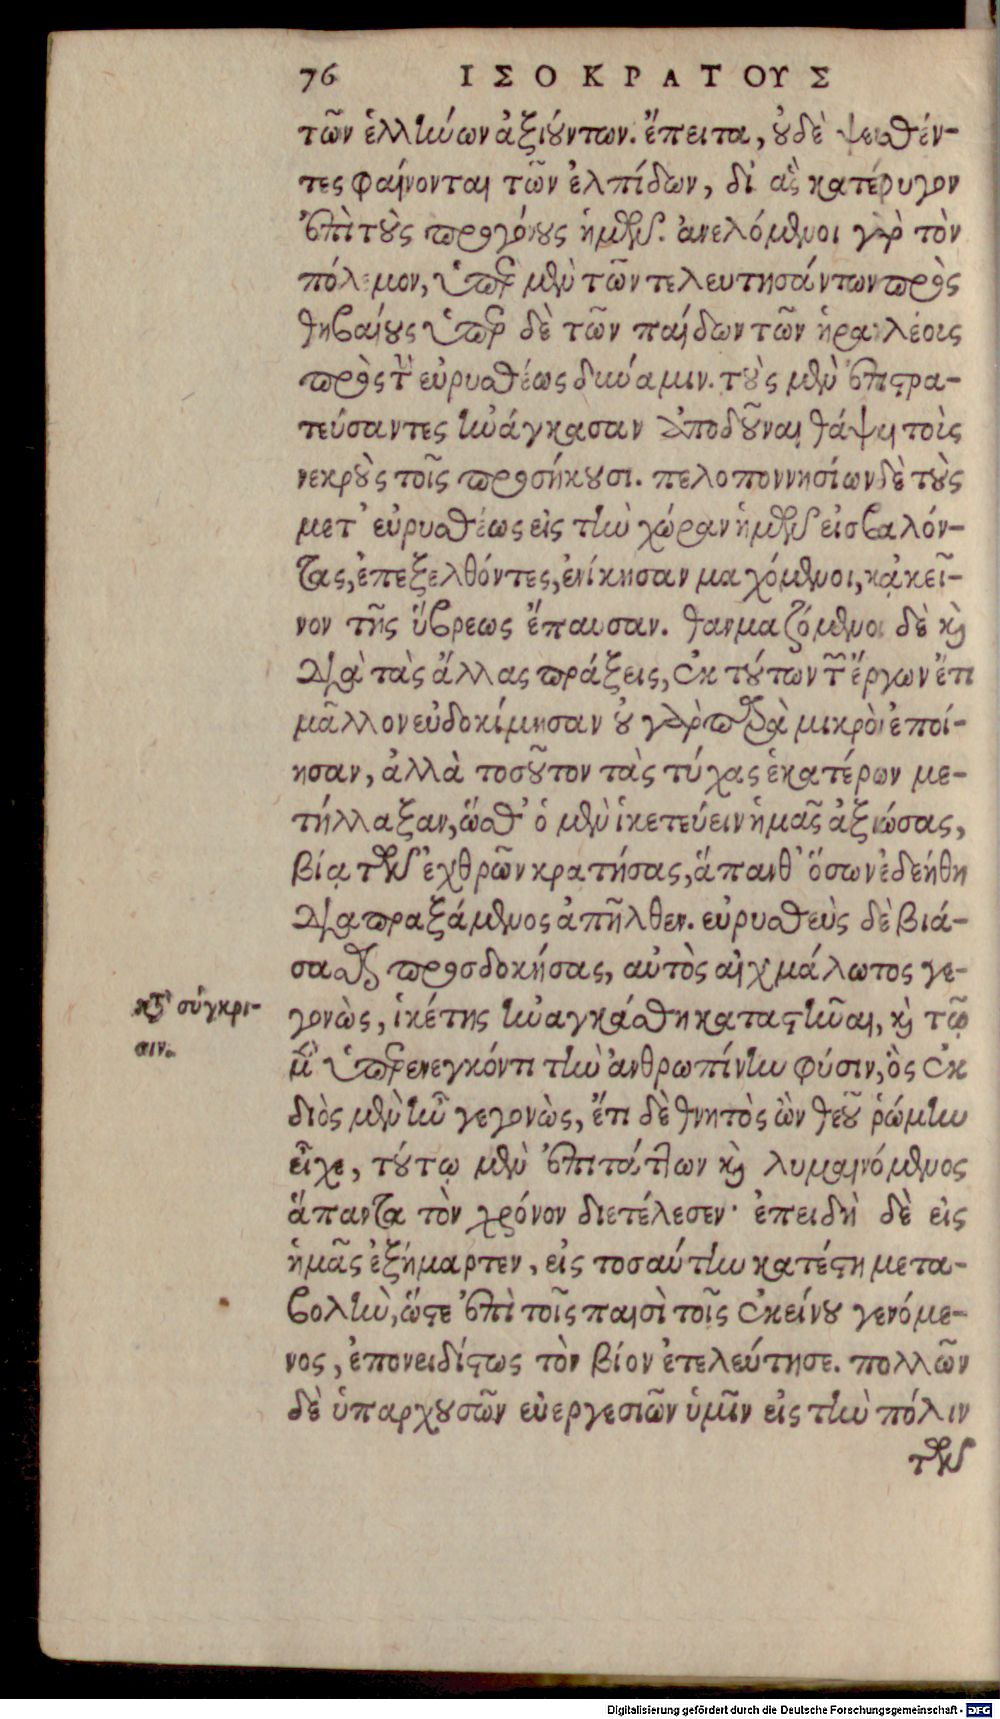 76 ΙΣΟΚΡΑΤΟΥΣ
τῶν ἑλλήνων ἀξιούντων. ἔπειτα, οὐδὲ ψευσθέν-
τες φαίνονται τῶν ἐλπίδων, δι' ἃς κατέφυγον
ἐπὶ τοὺς προγόνους ἡμῶν. ἀνελόμενοι γὰρ τὸν
πόλεμον, ὑπὲρ μὲν τῶν τελευτησάντων πρὸς
θηβαίους ὑπὲρ δὲ τῶν παίδων τῶν ἡρακλέους
πρὸς τὴν εὐρυσθέως δύναμιν. τοὺς μὲν ἐπιστρα-
τεύσαντες ἠνάγκασαν ἀποδοῦναι θάψαι τοὺς
νεκροὺς τοῖς προσήκουσι. πελοποννησίων δὲ τοὺς
μετ' εὐρυσθέως εἰς τὴν χώραν ἡμῶν εἰσβαλόν-
τας, ἐπεξελθόντες, ἐνίκησαν μαχόμενοι, κἀκεῖ-
νον τῆς ὕβρεως ἔπαυσαν. θαυμαζόμενοι δὲ καὶ
διὰ τὰς ἄλλας πράξεις, ἐκ τούτων τῶν ἔργων ἔτι
μᾶλλον εὐδοκίμησαν οὐ γὰρ παρὰ μικρὸν ἐποί-
ησαν, ἀλλὰ τοσοῦτον τὰς τύχας ἑκατέρων με-
τήλλαξαν, ὥσθ' ὁ μὲν ἱκετεύειν ἡμᾶς ἀξιώσας,
βίᾳ τῶν ἐχθρῶν κρατήσας, ἅπανθ' ὅσων ἐδεήθη
διαπραξάμενος ἀπῆλθεν. εὐρυσθεὺς δὲ βιά-
σασθαι προσδοκήσας, αὐτὸς αἰχμάλωτος γε-
γονὼς, ἱκέτης ἠναγκάσθη καταστῆναι, καὶ τῷ
μὲν ὑπερενεγκόντι τὴν ἀνθρωπίνην φύσιν, ὃς ἐκ
διὸς μὲν ἦν γεγονὼς, ἔτι δὲ θνητὸς ὢν θεοῦ ῥώμην
εἶχε, τούτῳ μὲν ἐπιτάττων καὶ λυμαινόμενος
ἅπαντα τὸν χρόνον διετέλεσεν· ἐπειδὴ δὲ εἰς
ἡμᾶς ἐξήμαρτεν, εἰς τοσαύτην κατέστη μετα-
βολὴν, ὥστε ἐπὶ τοῖς παισὶ τοῖς ἐκείνου γενόμε-
νος, ἐπονειδίστως τὸν βίον ἐτελεύτησε. πολλῶν
δὲ ὑπαρχουσῶν εὐεργεσιῶν ὑμῖν εἰς τὴν πόλιν
τῶν
κατὰ σύγκρι-
σιν.
Digitalisierung gefördert durch die Deutsche Forschungsgemeinschaft - DFG